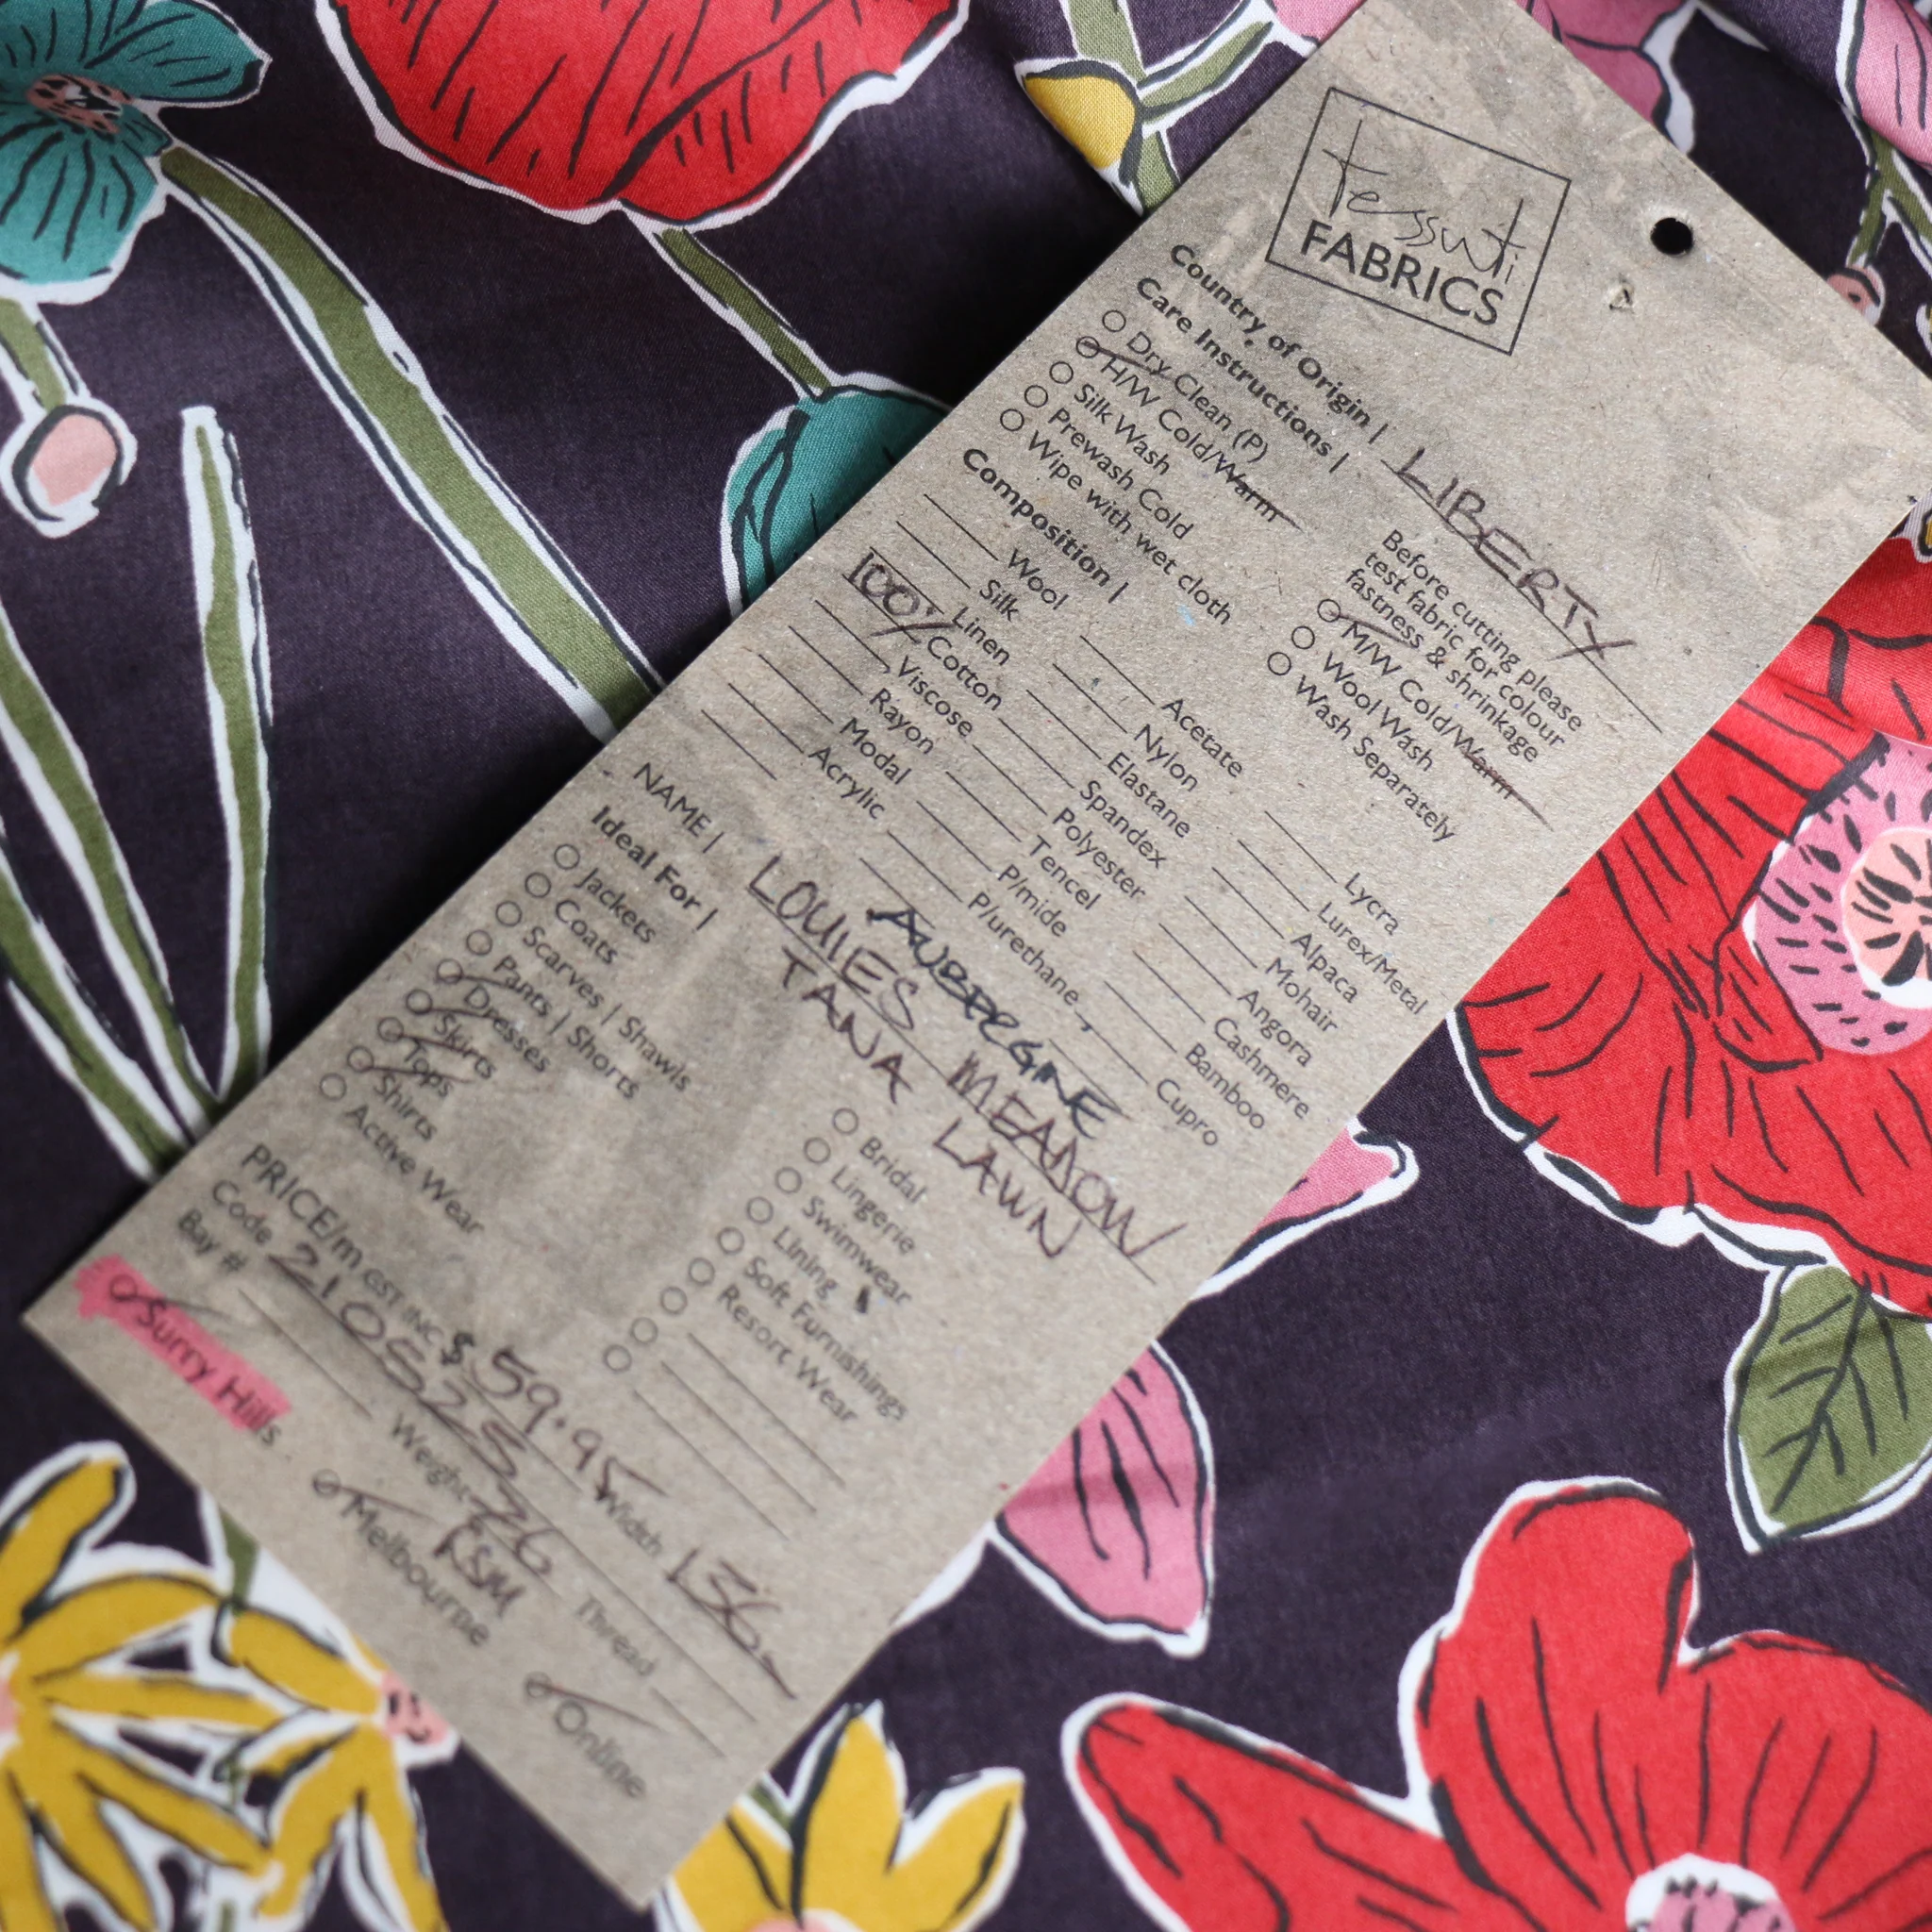 Tessuti
FABRICS
Country of Origin | LIBERTY
Care Instructions |
Before cutting please
test fabric for colour
fastness & shrinkage
Dry Clean (P)
H/W Cold/Warm
Silk Wash
Prewash Cold
Wipe with wet cloth
M/W Cold/Warm
Wool Wash
Wash Separately
Composition |
Wool
Silk
Linen
100% Cotton
Viscose
Rayon
Modal
Acrylic
Acetate
Nylon
Elastane
Spandex
Polyester
Tencel
P/mide
P/urethane
Lycra
Lurex/Metal
Alpaca
Mohair
Angora
Cashmere
Bamboo
Cupro
AUBERGINE
NAME | LOUIES MEADOW
TANA LAWN
Ideal For |
Jackets
Coats
Scarves | Shawls
Pants | Shorts
Dresses
Skirts
Tops
Shirts
Active Wear
Bridal
Lingerie
Swimwear
Lining
Soft Furnishings
Resort Wear
PRICE/m GST INC $ 59.95 Width 136
Code 210525 Weight 76 Thread
Bay # RSM
Surry Hills Melbourne Online